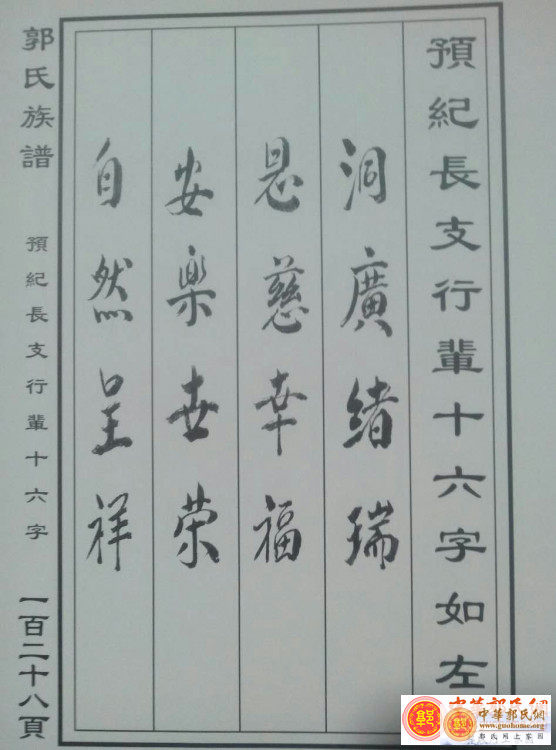 預紀長支行輩十六字如左
洞廣緒瑞
恩慈幸福
安樂世榮
自然呈祥
郭氏族譜
預紀長支行輩十六字
一百二十八頁
中華郭氏網
www.guohome.org
郭氏网上家园